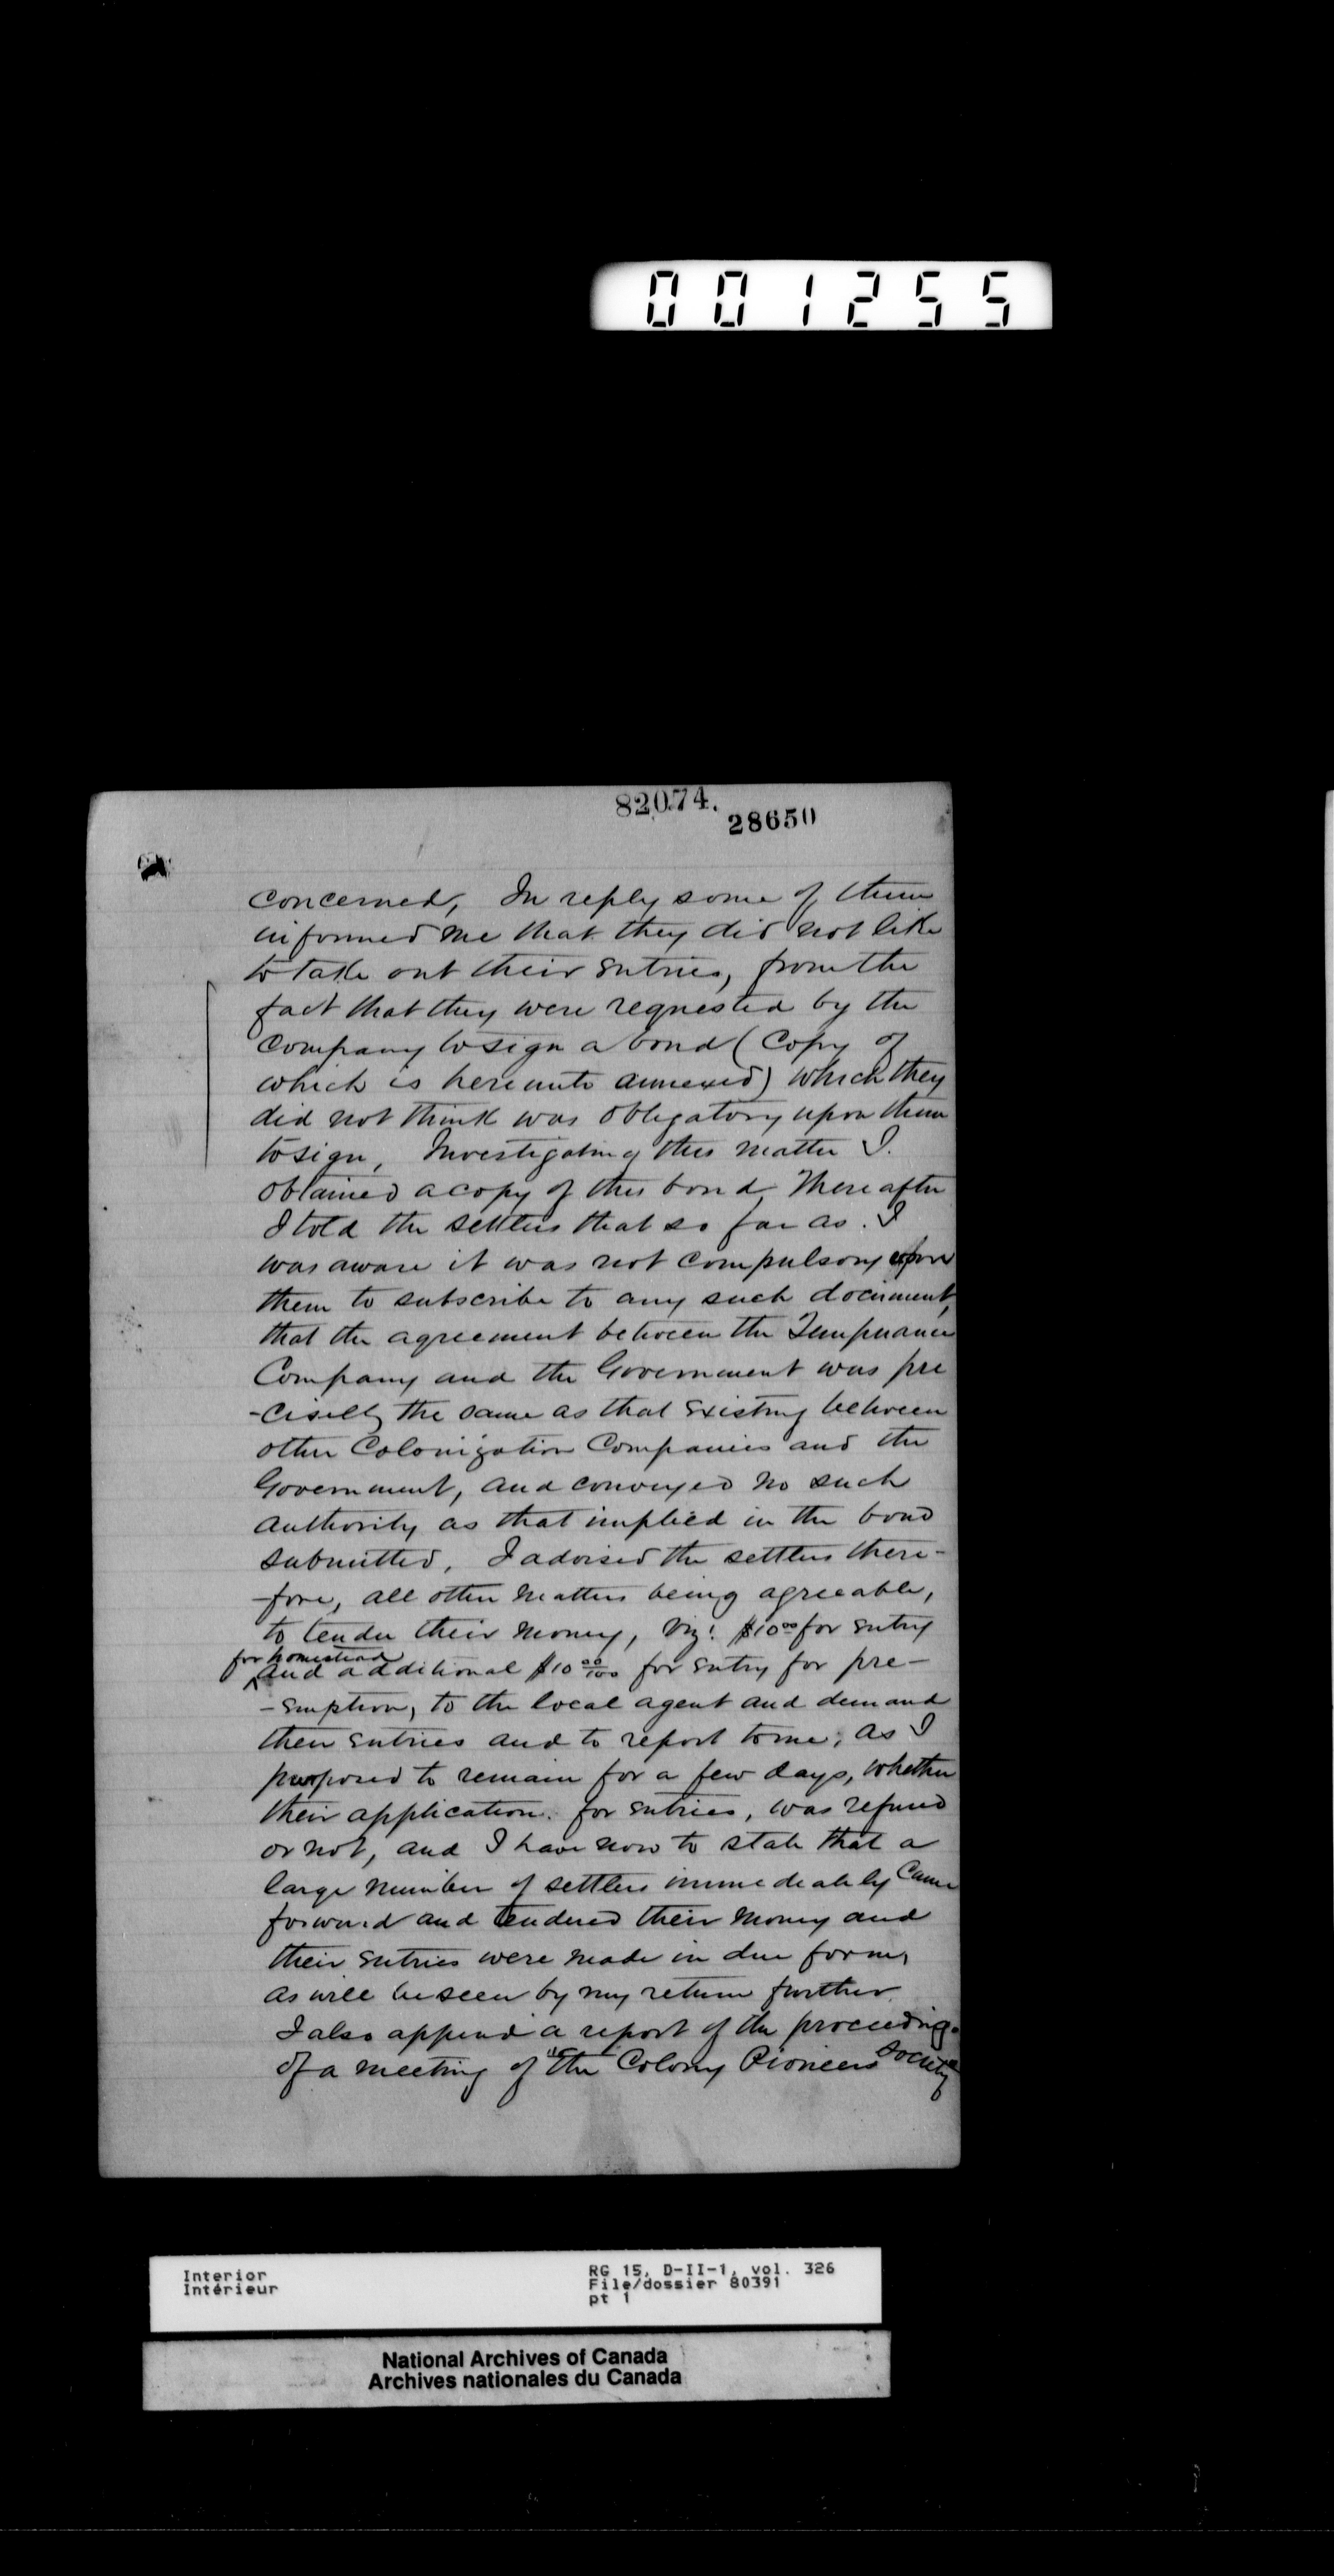 001255
82074.
28650
concerned, In reply some of them
informed me that they did not like
to take out their entries, from the
fact that they were requested by the
Company to sign a bond (Copy of
which is hereunto annexed) which they
did not think was obligatory upon them
to sign, Investigating this matter I.
obtained a copy of this bond Thereafter
I told the settlers that so far as I
was aware it was not compulsory upon
them to subscribe to any such document,
that the agreement between the Temperance
Company and the Government was pre
-cisely the same as that existing between
other Colonization Companies and the
Government, and conveyed no such
authority as that implied in the bond
submitted, I advised the settlers there-
-fore, all other matters being agreeable,
to tender their money, viz: $10 00 for entry
for homestead
and additional $10 00/100 for entry for pre-
-emption, to the local agent and demand
their entries and to report to me, as I
purposed to remain for a few days, whether
their application for entries, was refused
or not, and I have now to state that a
large number of settlers immediately came
forward and tendered their money and
their entries were made in due form,
as will be seen by my return further.
I also append a report of the proceedings
of a meeting of "The Colony Pioneers Society
Interior
Intérieur
RG 15, D-II-1, vol. 326
File/dossier 80391
pt 1
National Archives of Canada
Archives nationales du Canada